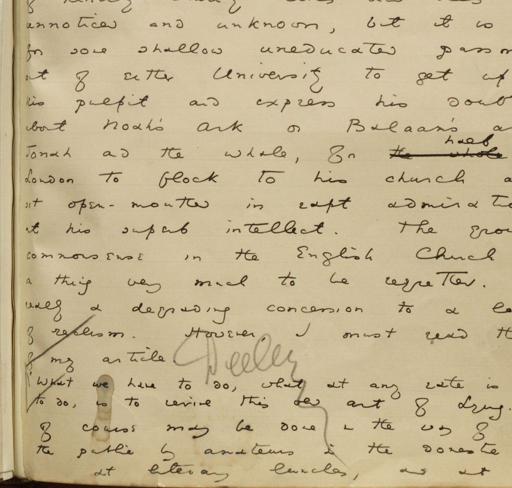 unnoticed and unknown, but it is
for some shallow uneducated passm
out of either University to get up
his pulpit and express his doub
about Noah's Ark or Balaam's a
Jonah and the whale, for the whole half
London to flock to his church a
sit open-mouthed in rapt admiratio
at his superb intellect. The grow
commonsense in the English Church
a thing very much to be regretted.
really a degrading concession to a lo
of realism. However, I must read th
of my article
Deeley
What we have to do, what at any rate is
to do, is to revive this old art of Lying.
of course may be done in the way of
the public by amateurs in the domestic
at literary lunches, and at